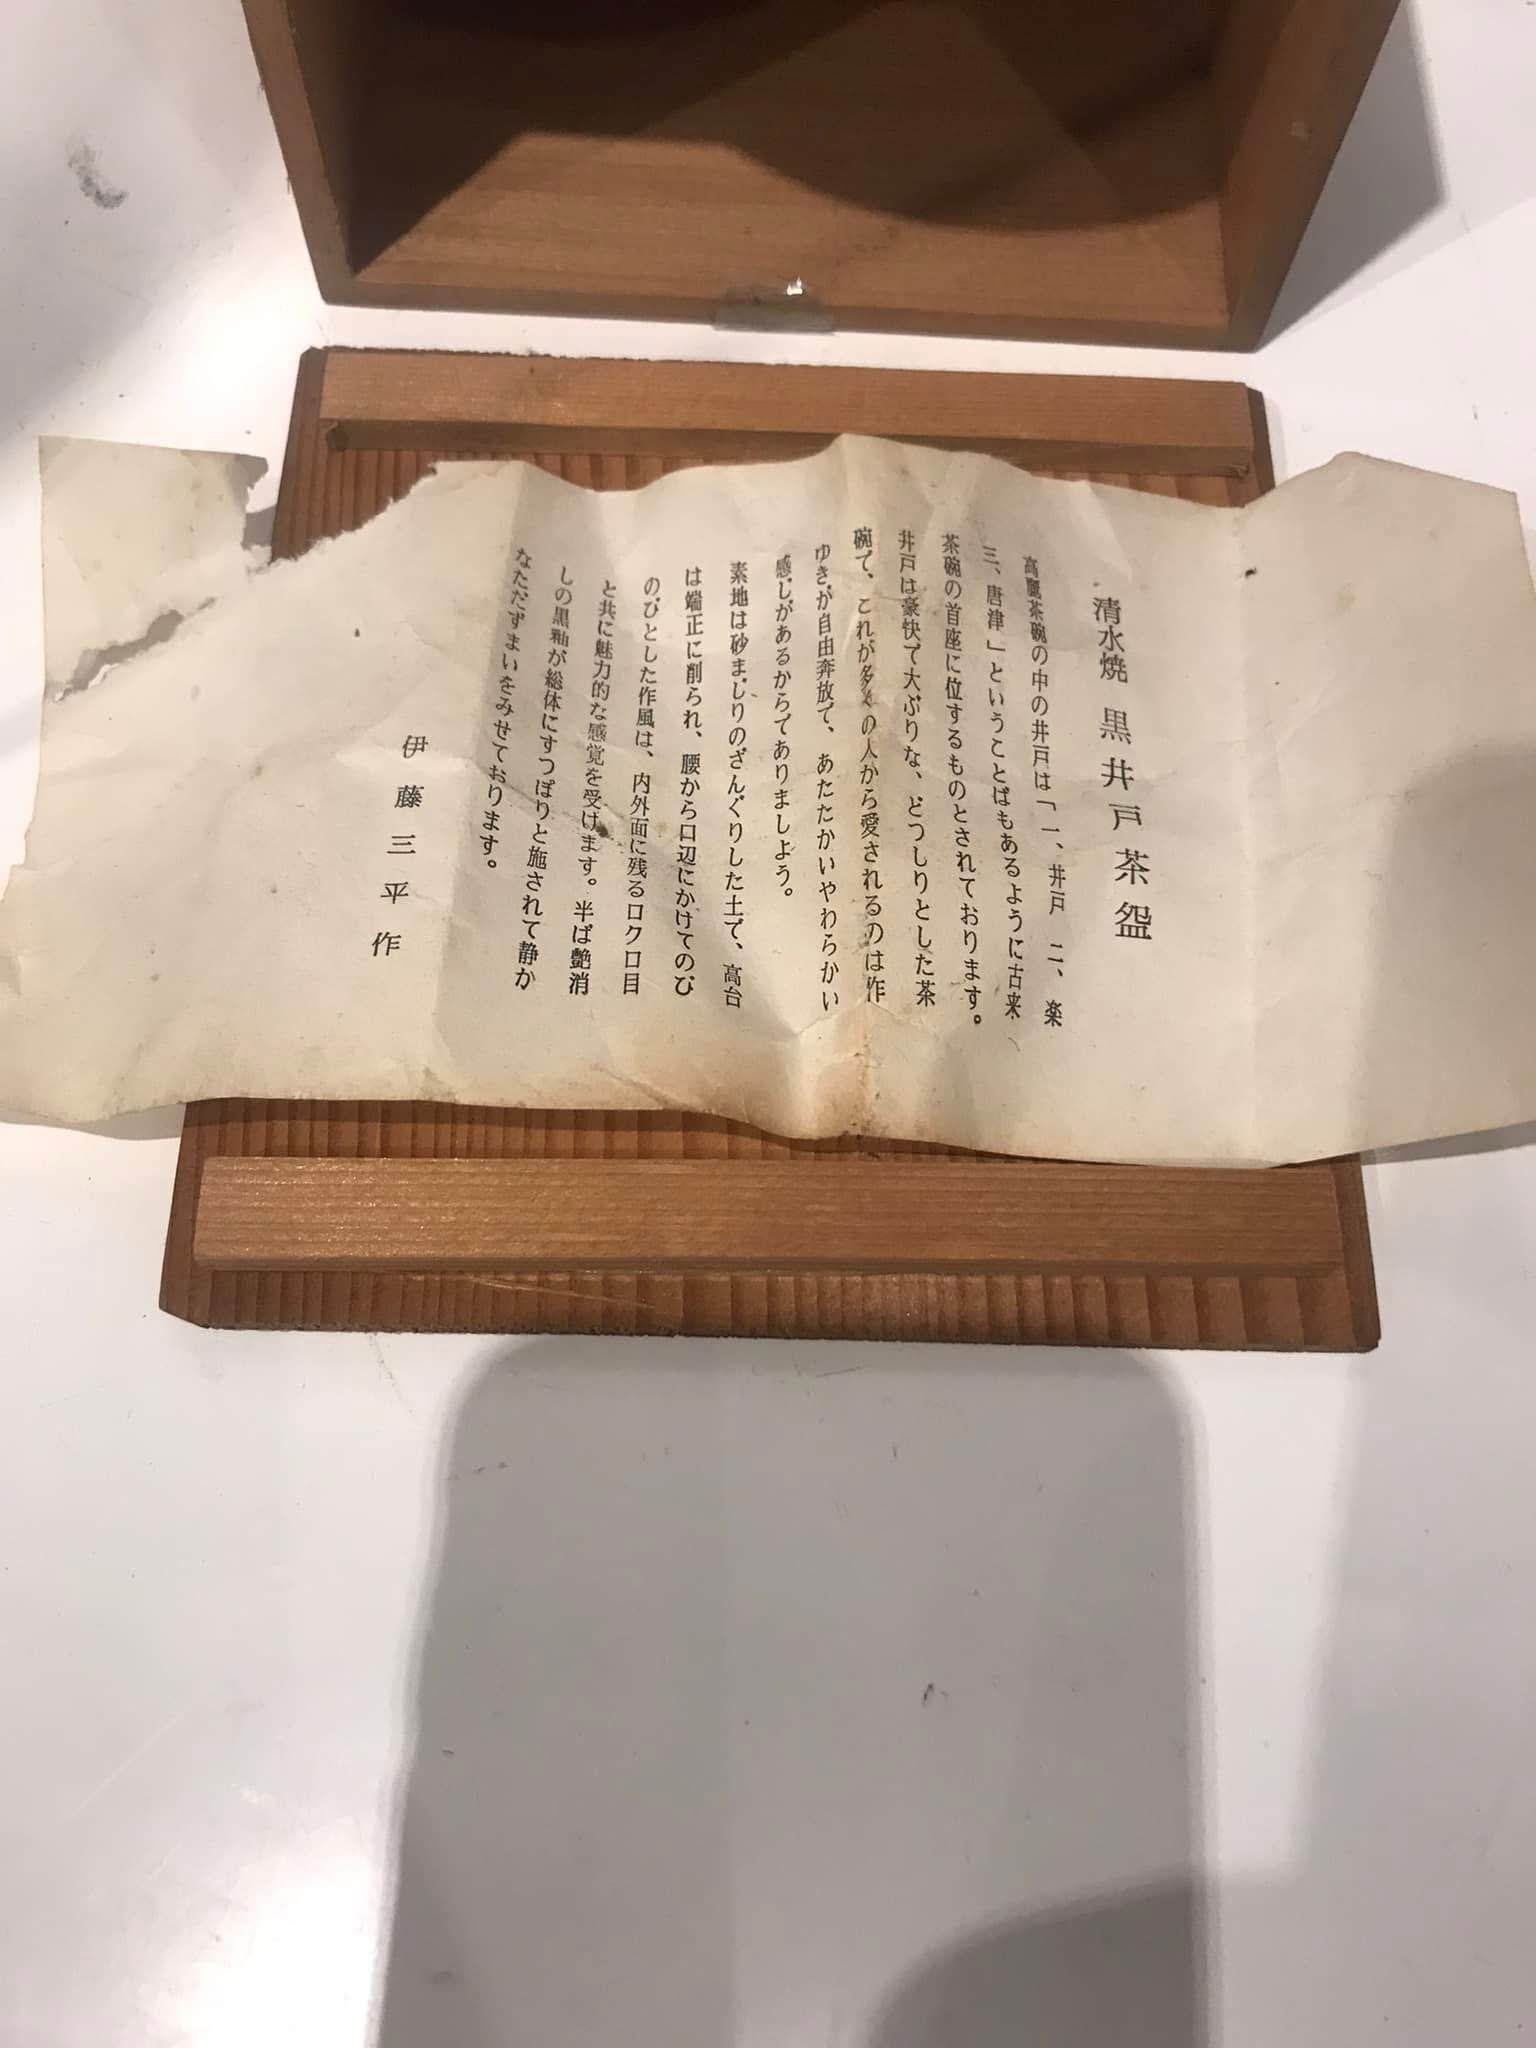 清水焼 黒井戸茶盌
高麗茶碗の中の井戸は「一、井戸 二、楽
三、唐津」ということばもあるように古来
茶碗の首座に位するものとされております。
井戸は豪快で大ぶりな、どつしりとした茶
碗で、これが多くの人から愛されるのは作
ゆきが自由奔放で、あたたかいやわらかい
感じがあるからでありましよう。
素地は砂まじりのざんぐりした土で、高台
は端正に削られ、腰から口辺にかけてのび
のびとした作風は、内外面に残るロクロ目
と共に魅力的な感覚を受けます。半ば艶消
しの黒釉が総体にすつぽりと施されて静か
なたたずまいをみせております。
伊藤三平作